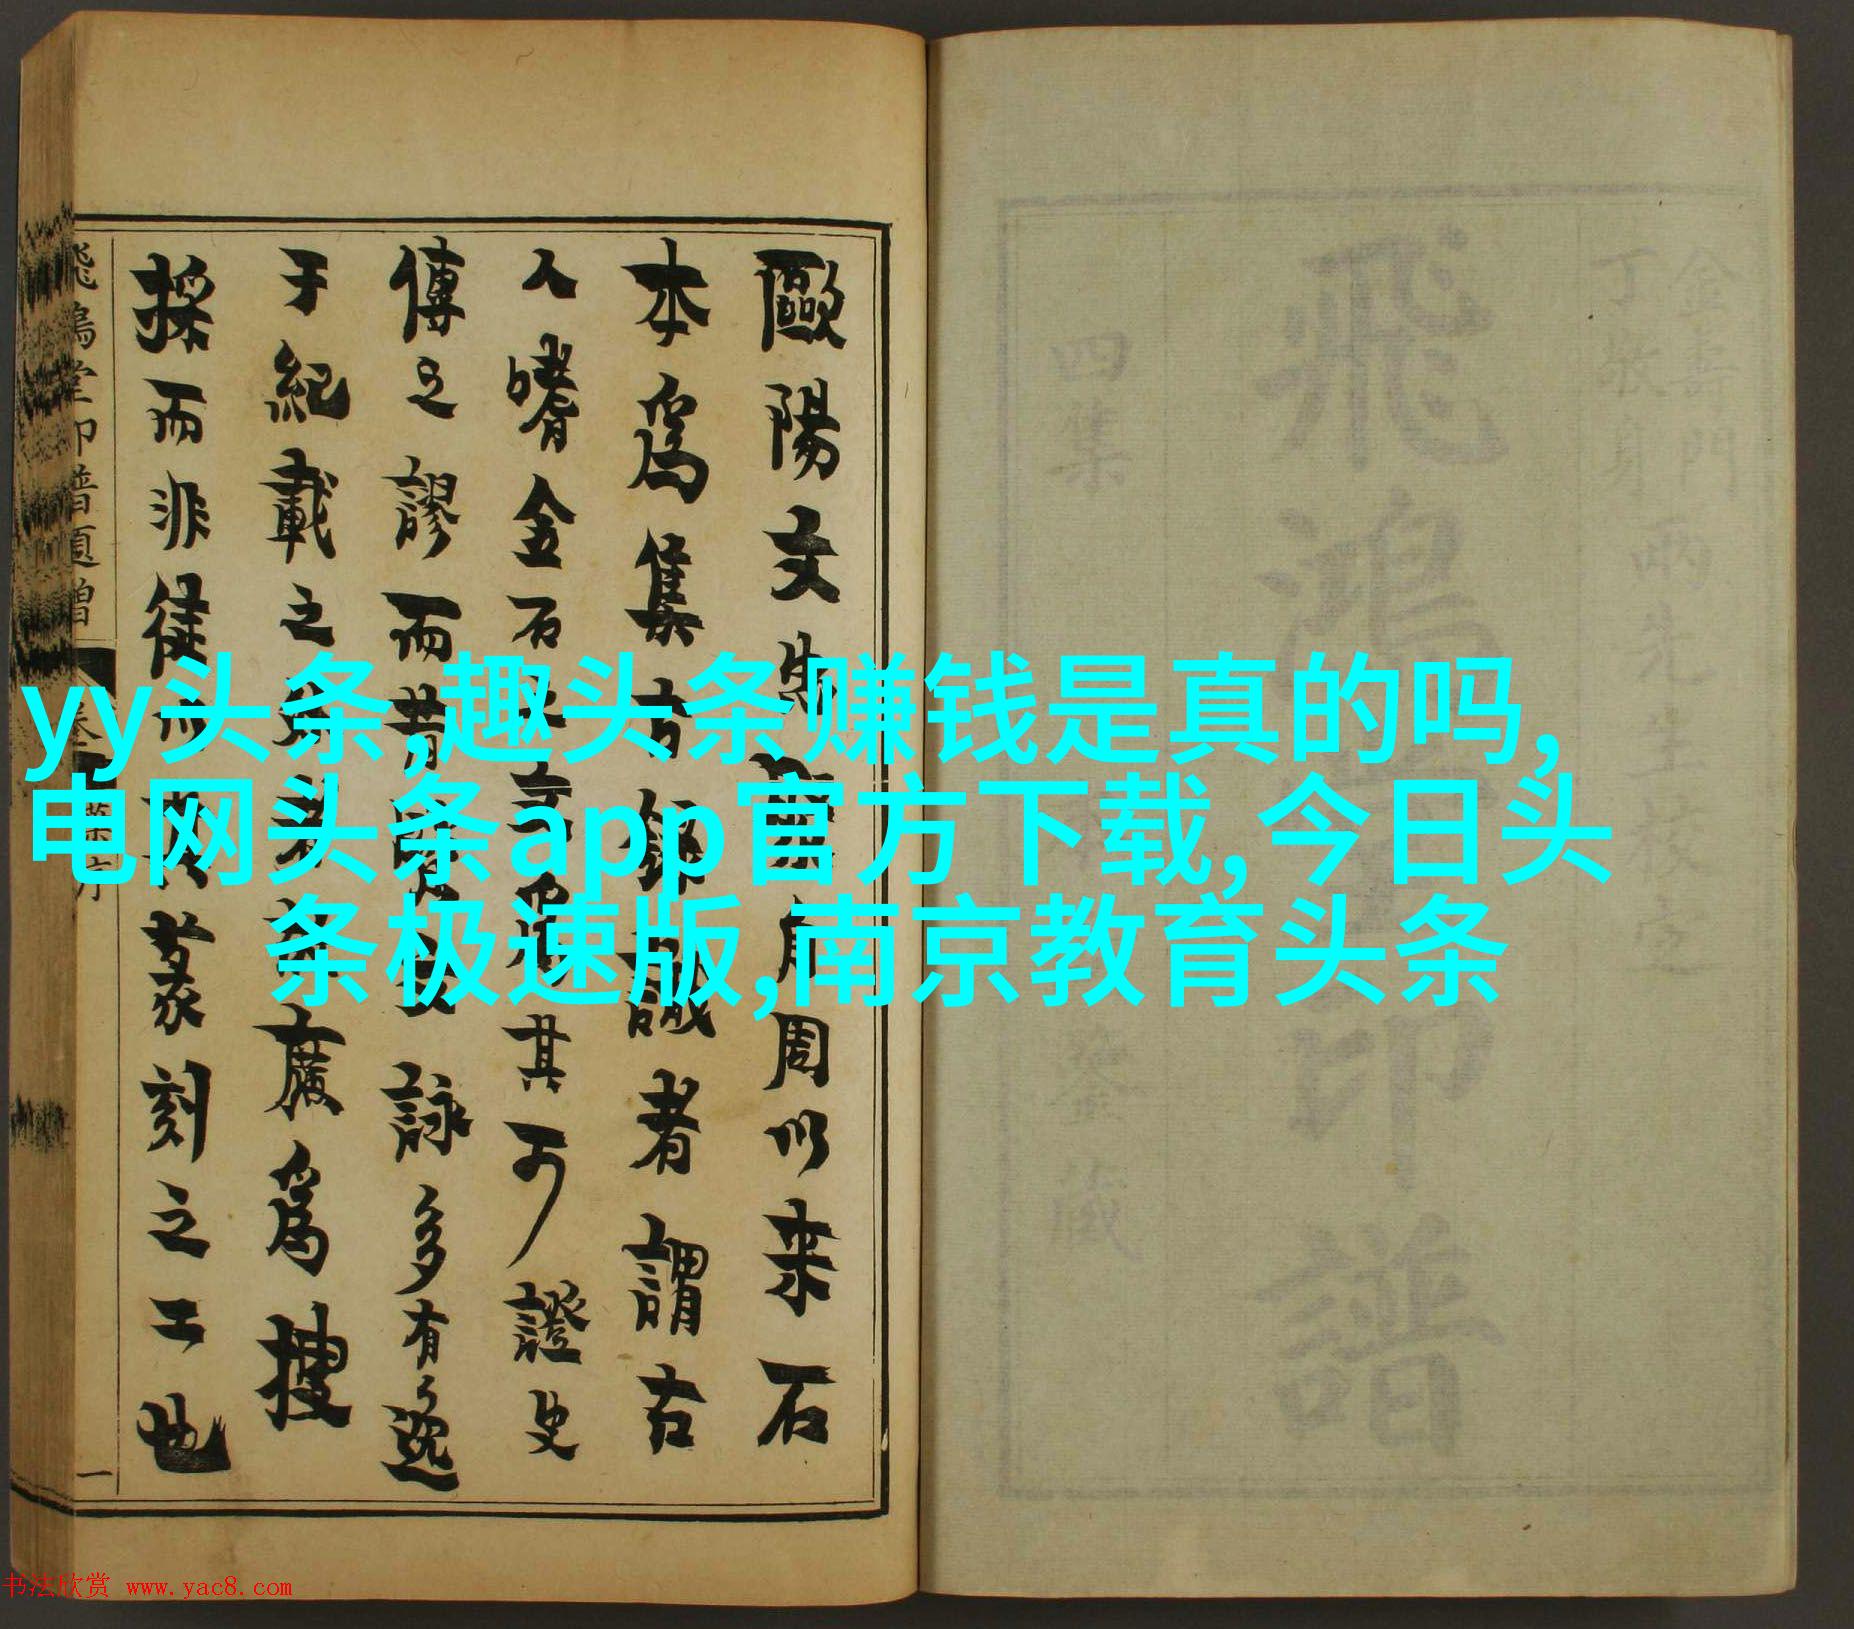 yy头条,趣头条赚钱是真的吗,
电网头条app官方下载,今日头
条极速版,南京教育头条
金壽門
丁敬身
兩先生校定
飛鴻堂印譜
四集
鑒藏
歐陽文忠周以来石
本爲集古錄識者謂古
人嗜金石之文爲其可證史
傳之謬而昔賢詠多有逸
于紀載之外者廣爲搜
採而非徒以其篆刻之工也
飛鴻堂印譜
一
书法欣赏 www.yac8.com